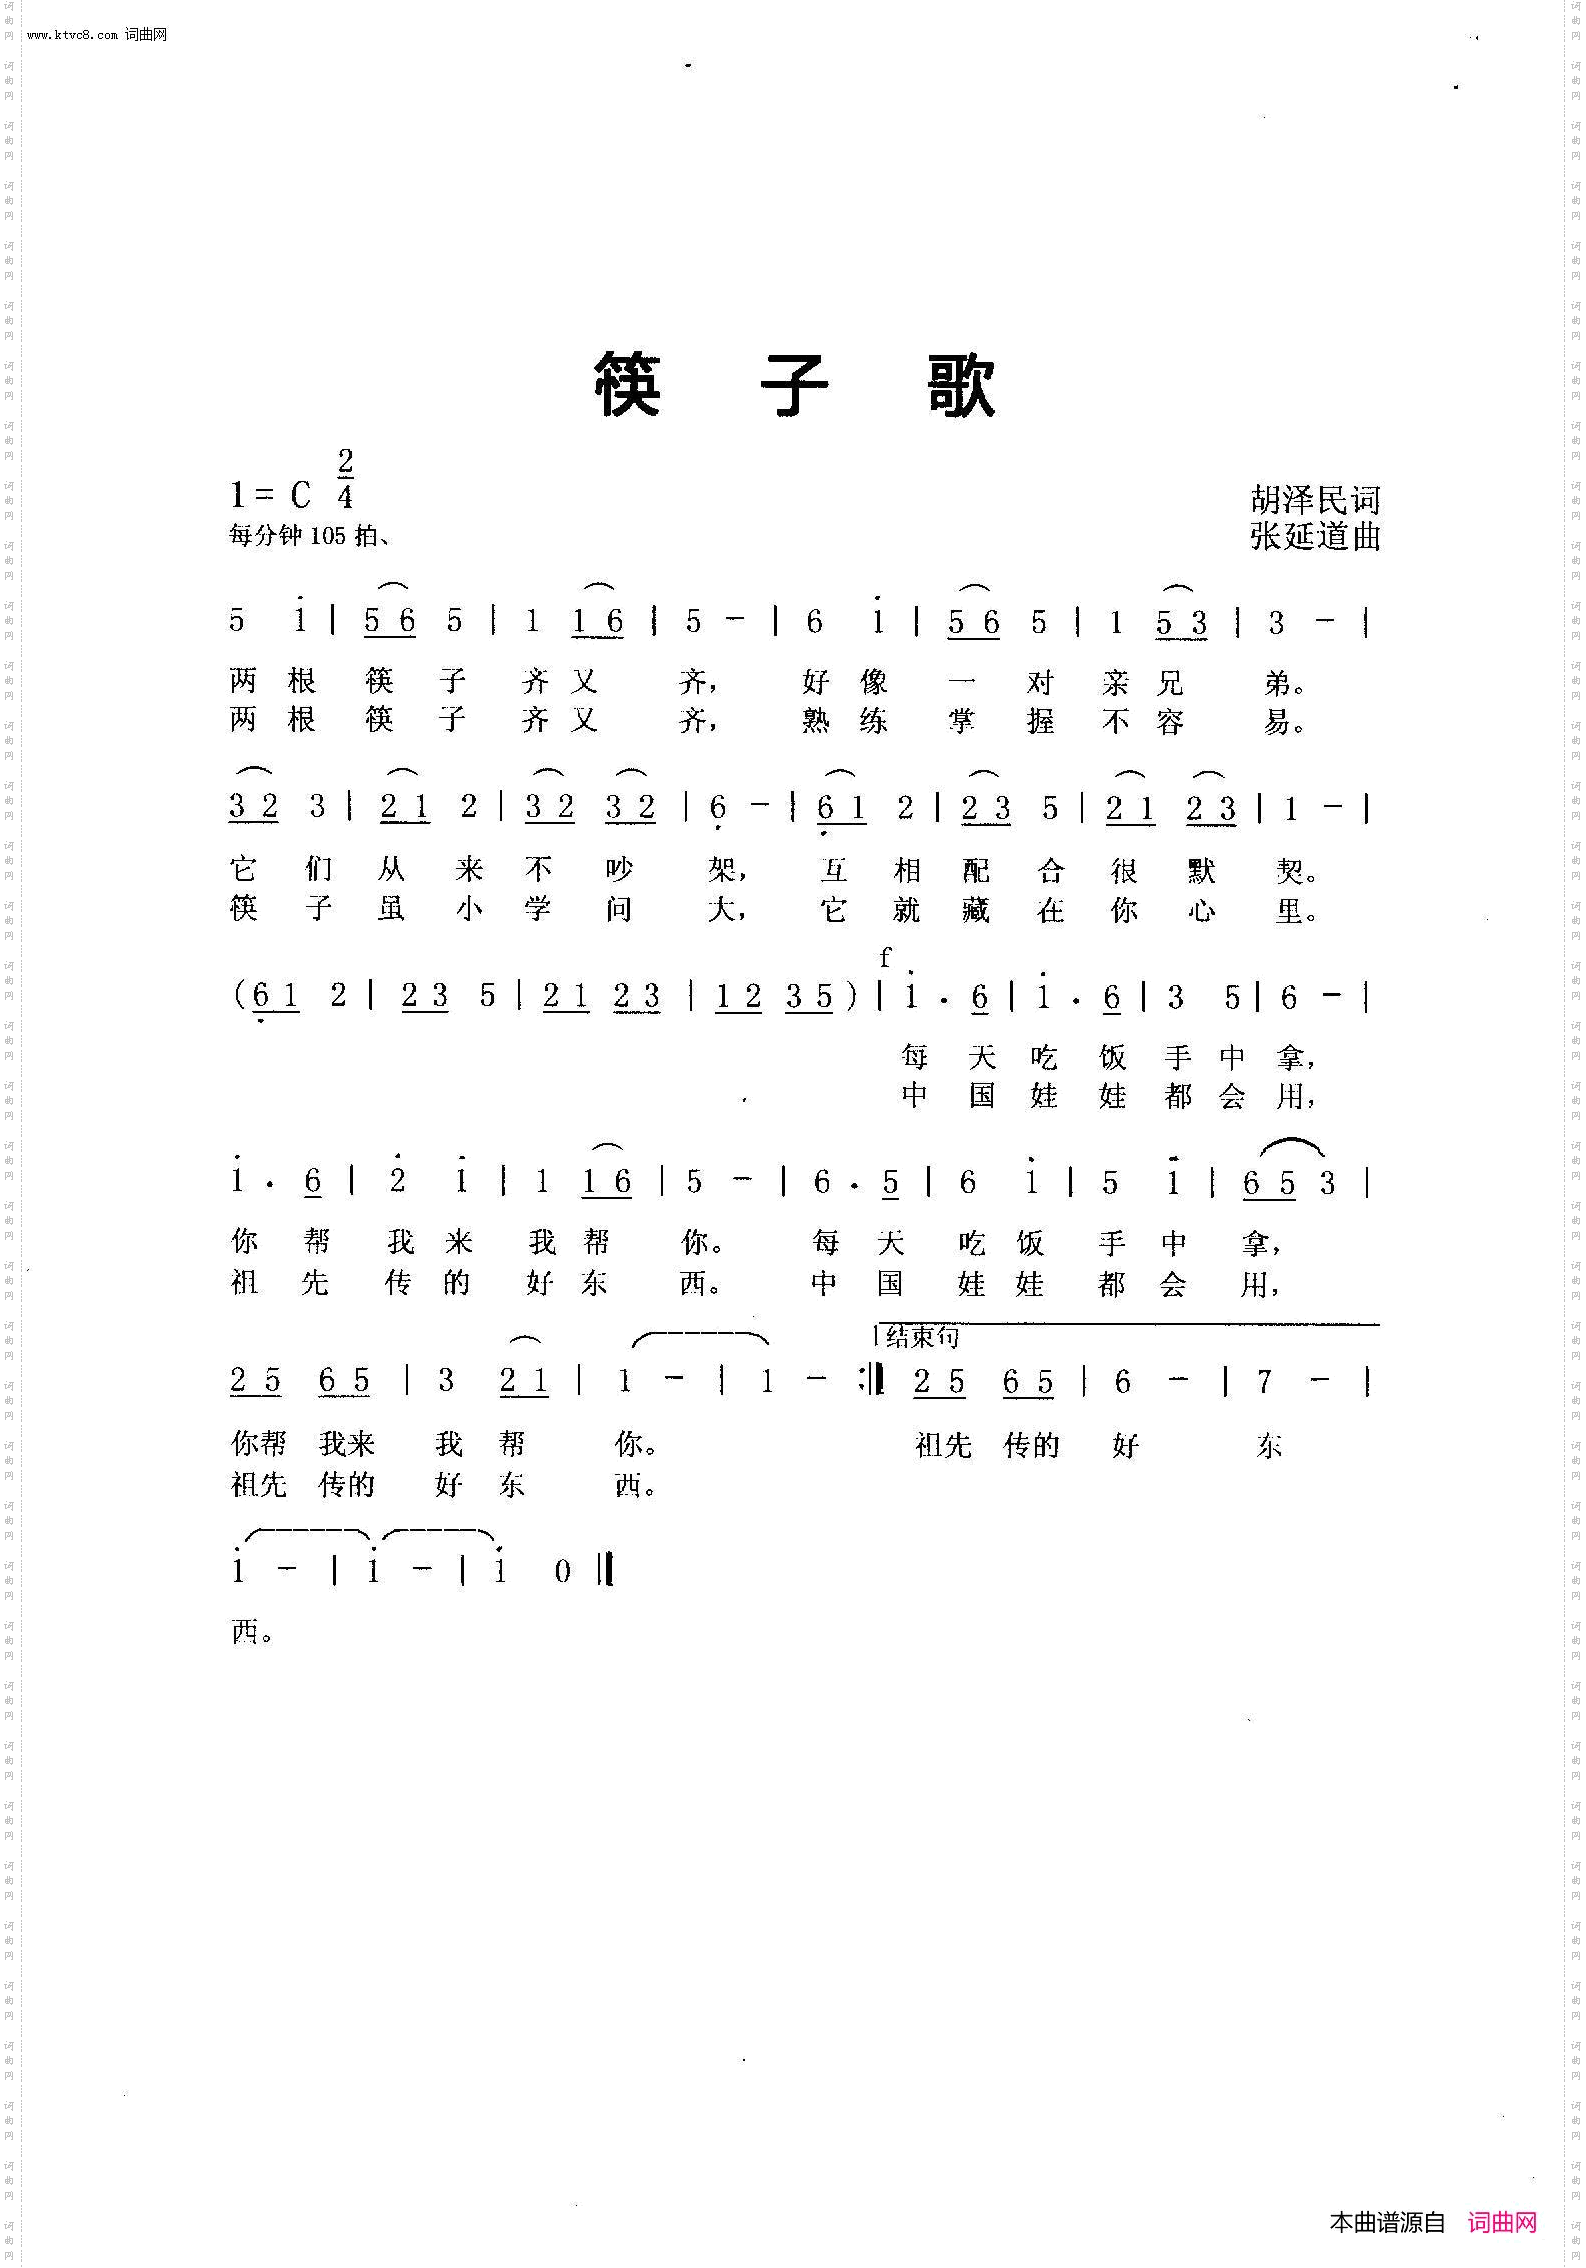 www.ktvc8.com 词曲网
筷 子 歌
1= C 2/4
每分钟 105 拍、
胡泽民词
张延道曲
5 i | 5 6 5 | 1 1 6 | 5 － | 6 i | 5 6 5 | 1 5 3 | 3 － |
两 根 筷 子 齐 又 齐， 好 像 一 对 亲 兄 弟。
两 根 筷 子 齐 又 齐， 熟 练 掌 握 不 容 易。
3 2 3 | 2 1 2 | 3 2 3 2 | 6 － | 6 1 2 | 2 3 5 | 2 1 2 3 | 1 － |
它 们 从 来 不 吵 架， 互 相 配 合 很 默 契。
筷 子 虽 小 学 问 大， 它 就 藏 在 你 心 里。
f
( 6 1 2 | 2 3 5 | 2 1 2 3 | 1 2 3 5 ) | i . 6 | i . 6 | 3 5 | 6 － |
每 天 吃 饭 手 中 拿，
中 国 娃 娃 都 会 用，
i . 6 | 2 i | 1 1 6 | 5 － | 6 . 5 | 6 i | 5 i | 6 5 3 |
你 帮 我 来 我 帮 你。 每 天 吃 饭 手 中 拿，
祖 先 传 的 好 东 西。 中 国 娃 娃 都 会 用，
结束句
2 5 6 5 | 3 2 1 | 1 － | 1 － :‖ 2 5 6 5 | 6 － | 7 － |
你帮 我来 我 帮 你。 祖先 传的 好 东
祖先 传的 好 东 西。
i － | i － | i 0 ‖
西。
本曲谱源自 词曲网